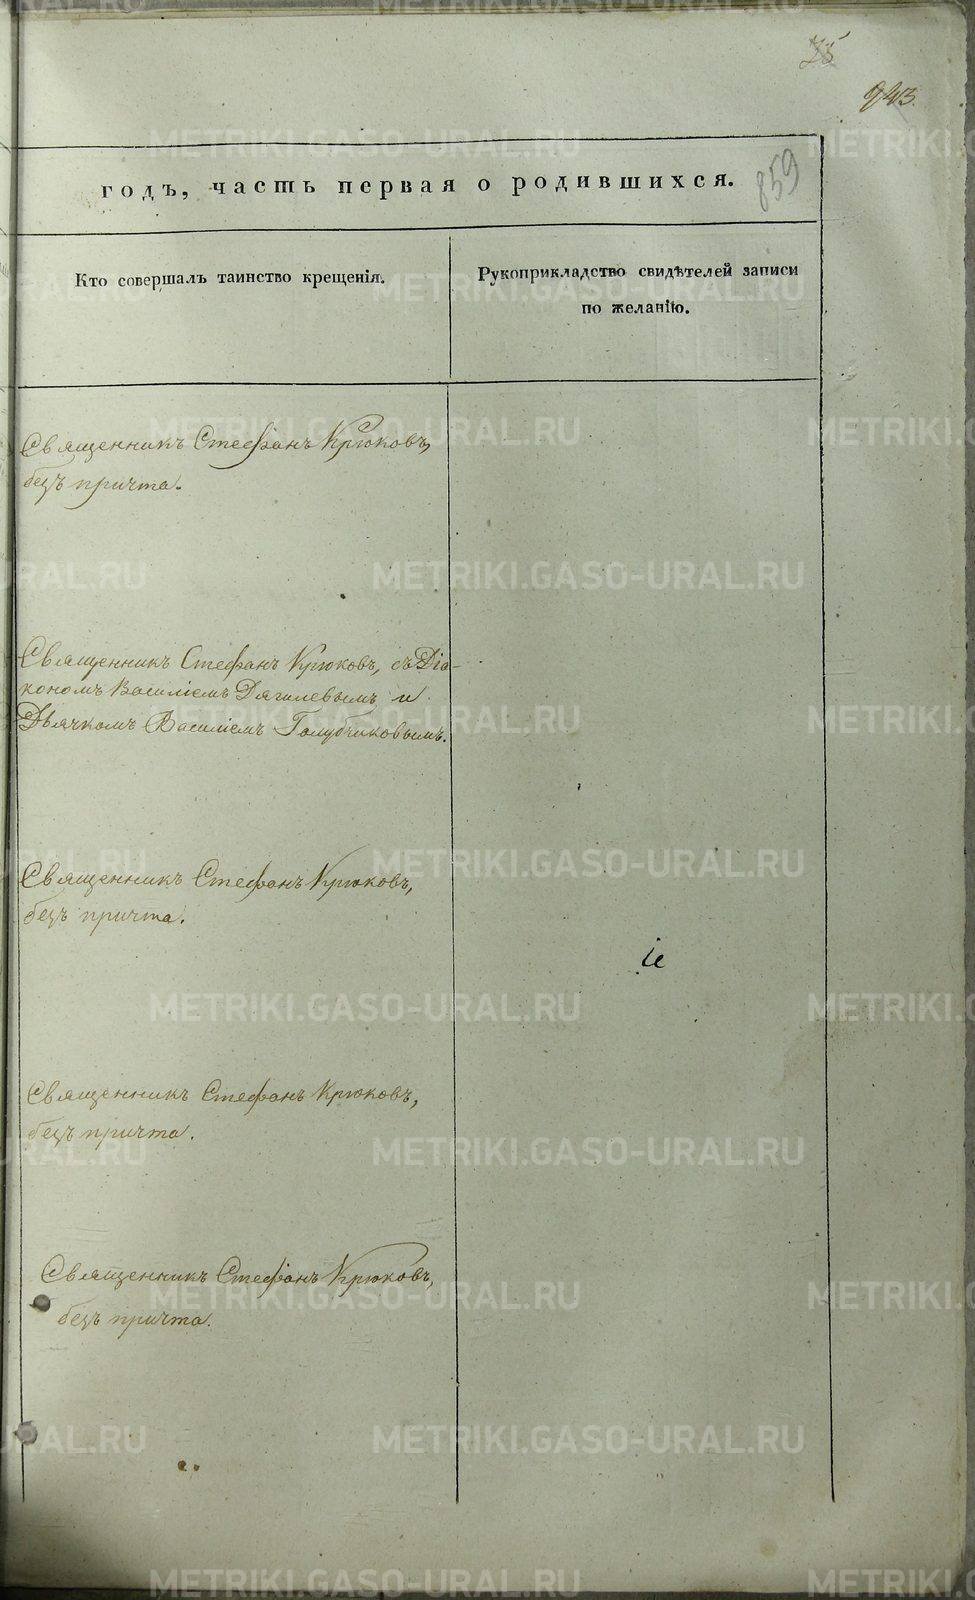 943.
859
годъ, часть первая о родившихся.
Кто совершалъ таинство крещенія.
Рукоприкладство свидѣтелей записи
по желанію.
Священникъ Стефанъ Крюковъ,
безъ причта.
Священникъ Стефанъ Крюковъ, съ Діа-
кономъ Василіемъ Дягилевымъ и
Дьячкомъ Василіемъ Голубчиковымъ.
Священникъ Стефанъ Крюковъ,
безъ причта.
іе
Священникъ Стефанъ Крюковъ,
безъ причта.
Священникъ Стефанъ Крюковъ,
безъ причта.
METRIKI.GASO-URAL.RU